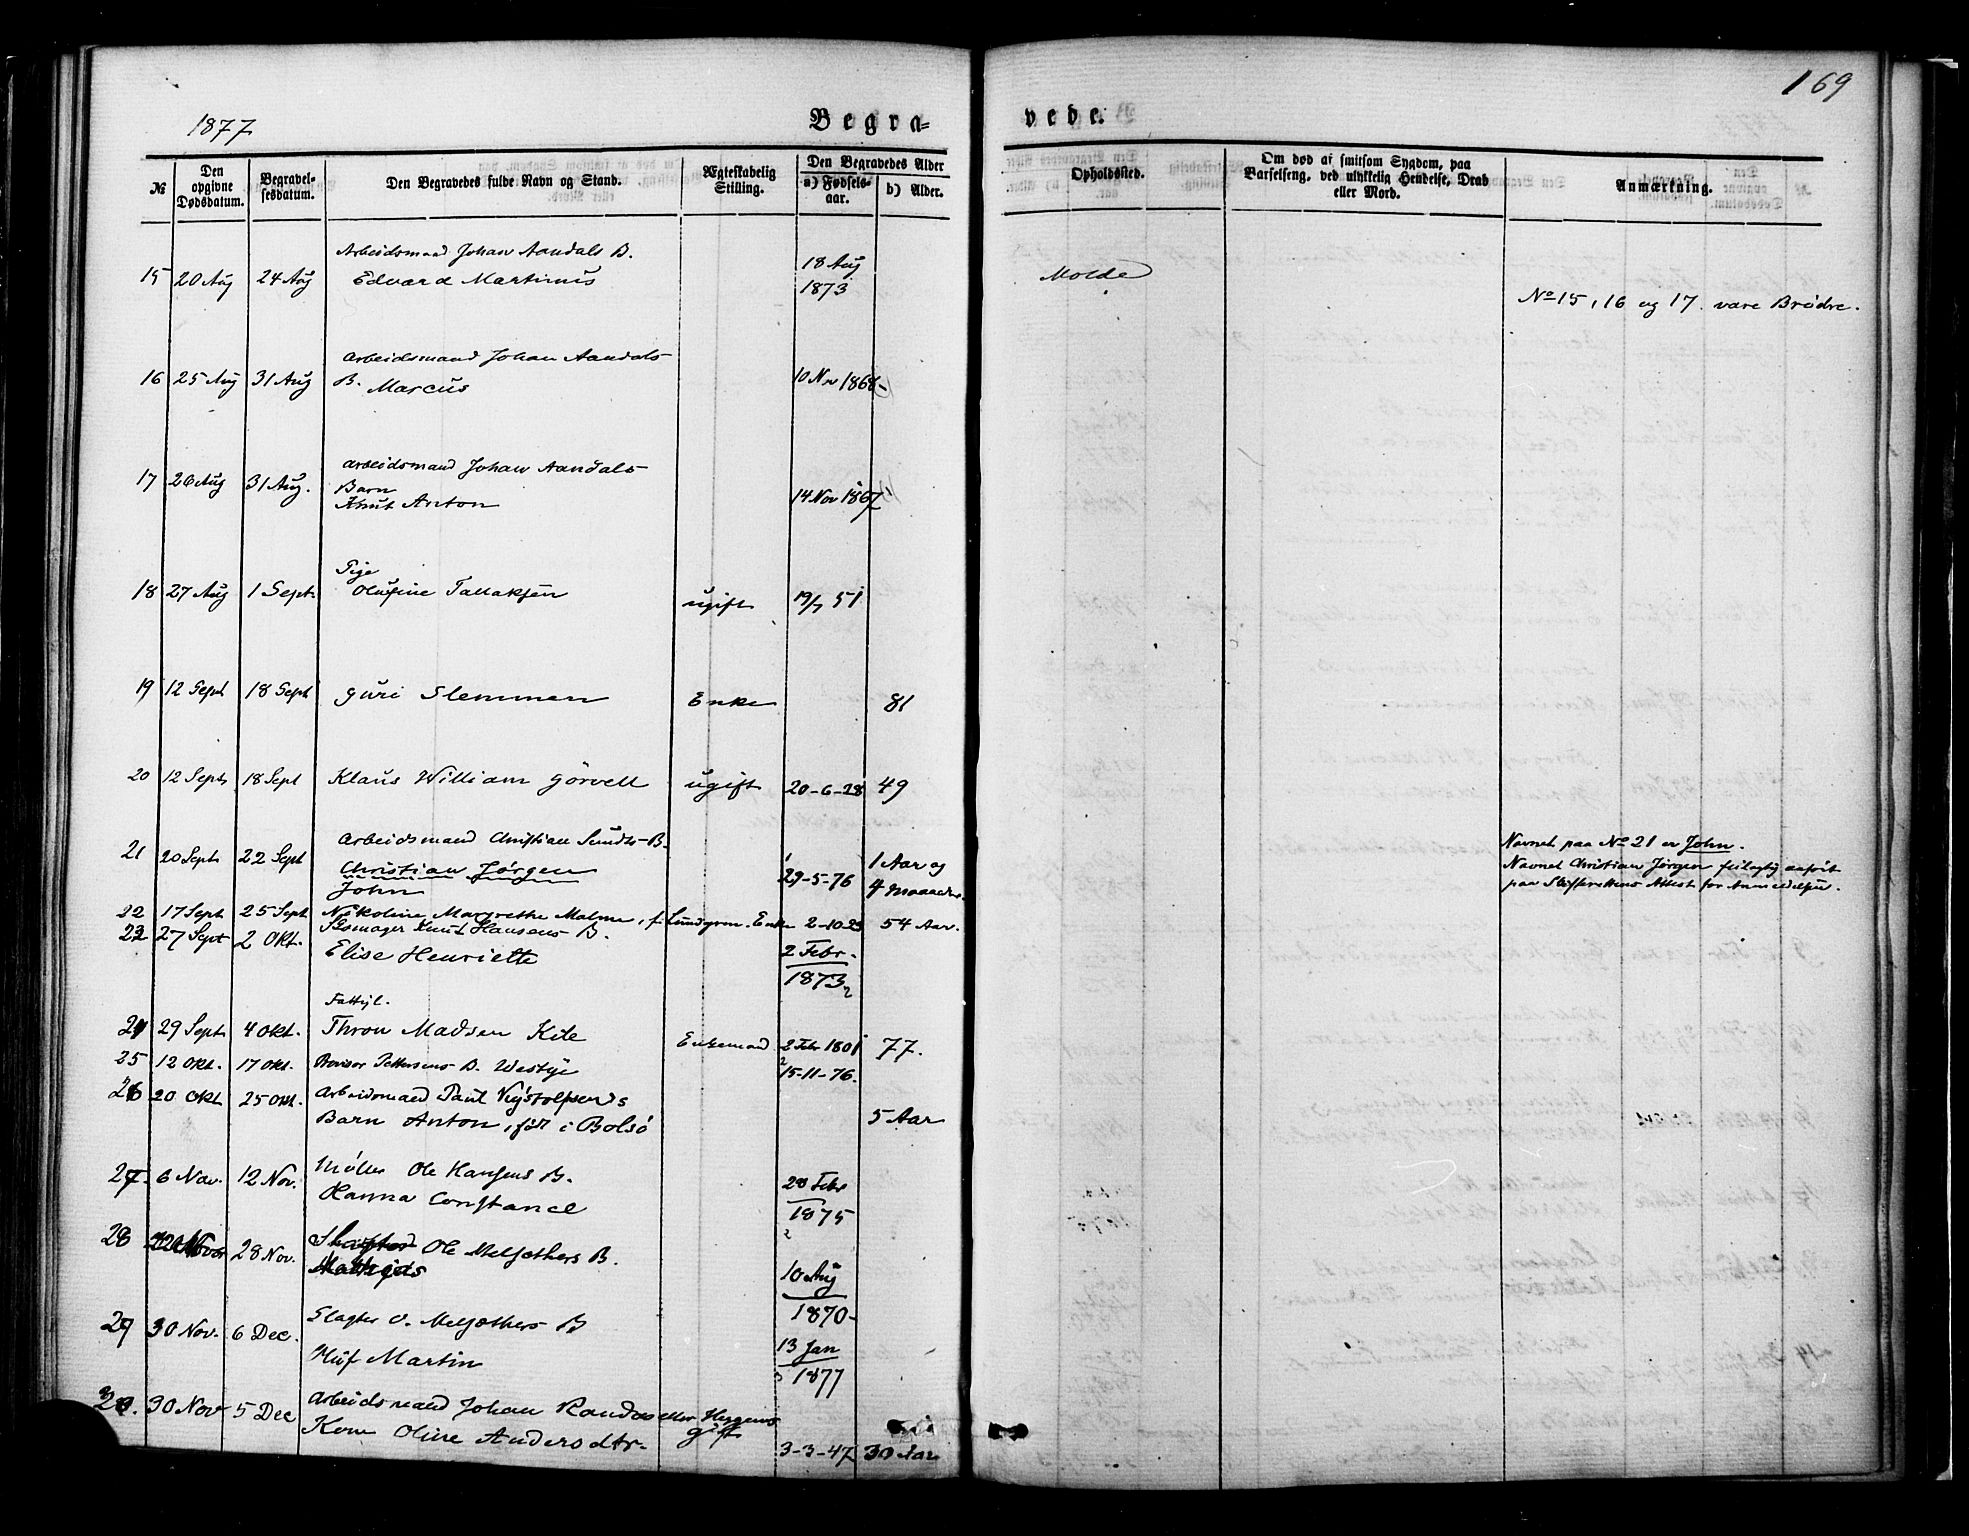 169
1877
Begra= vede.
№ Den opgivne Dødsdatum. Begravel-sesdatum. Den Begravedes fulde Navn og Stand. Ægteskabelig Stilling. Den Begravedes Alder a) Fødsels-aar. b) Alder. Opholdssted. Om død af smitsom Sygdom, paa Barselseng, ved ulykkelig Hendelse, Drab eller Mord. Anmærkning.
Arbeidsmand Johan Aandals B.
15 20 Aug 24 Aug Edvard Martinus 18 Aug 1873 Molde
No 15, 16 og 17 vare Brødre.
Arbeidsmand Johan Aandals
16 25 Aug 31 Aug B. Marcus 10 Nv 1868
Arbeidsmand Johan Aandals
17 26 Aug 31 Aug. Barn
Knut Anton 14 Nov 1867
Pige
18 27 Aug 1 Sept. Olufine Tallaksen ugift 19/7 51
19 12 Sept 18 Sept Guri Slemmen Enke 81
20 12 Sept 18 Sept Klaus William Görvell ugift 20-6-28 49
Arbeidsmand Christian Sunds B.
21 20 Sept 22 Sept Christian Jørgen 29-5-76 1 Aar og
John 4 Maaneder.
Navnet paa No 21 er John.
Navnet Christian Jørgen feilagtig anført
paa Skifterettens Attest for Anmeldelsen.
22 17 Sept 25 Sept Nikoline Margrethe Malme, f. Lundgren. Enke 2-10-23 54 Aar.
23 27 Sept 2 Okt. Skomager Knut Hansens B.
Elise Henriette 2 Febr. 1873
Fattigl.
24 29 Sept 4 Okt. Thron Madsen Kile Enkemand 2 Febr 1801 77.
25 12 Okt. 17 Okt. Provisor Pettersens B. Westye 15-11-76.
26 20 Okt 25 Okt. Arbeidsmand Paul
Barn Anton, født i Bolsö 5 Aar
27. 6 Nov. 12 Nov. Møller Ole Hansens B.
Hanna Constance 28 Febr 1875
28 28 Nov. Ole Melsethers B.
Mathias 10 Aug 1870
29 30 Nov. 6 Dec. Slagter O. Melsethers B
Oluf Martin 13 Jan 1877
30. 30 Nov 5 Dec Arbeidsmand Johan Randas eller Heggems
Kone Oline Andersdtr. gift 3-3-47 30 Aar